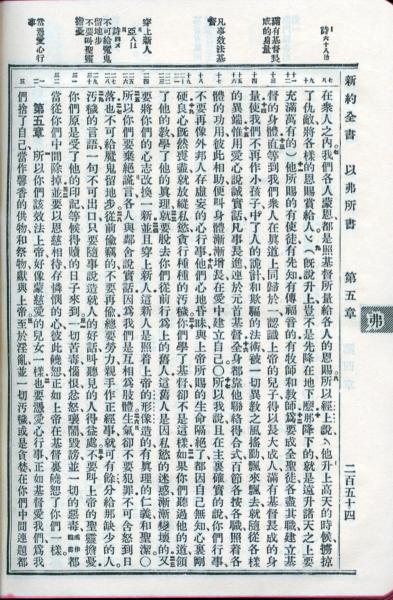 新約全書　以弗所書　第五章　二百五十四
弗
詩六十八
滿有基督長成的身量
凡事效法基督
穿上新人
亞八
詩四
不可給魔鬼留地步
不要叫聖靈擔憂
當憑愛心行事
在衆人之內我們各人蒙恩都是照基督所量給各人的恩賜所以經上說他升上高天的時候擄掠
了仇敵將各樣的恩賜賞給人(旣說升上豈不是先降在地下麼那降下的就是遠升諸天之上要
充滿萬有的)他所賜的有使徒有先知有傳福音的有牧師和敎師爲要成全聖徒各盡其職建立基
督的身體直等到我們衆人在眞道上同歸於一認識上帝的兒子得以長大成人滿有基督長成的身
量使我們不再作小孩子中了人的詭計和欺騙的法術被一切異敎之風搖動飄來飄去就隨從各樣
的異端惟用愛心說誠實話凡事長進連於元首基督全身都靠他聯絡得合式百節各按各職照着各
體的功用彼此相助便叫身體漸漸增長在愛中建立自己○所以我說且在主裏確實的說你們行事
不要再像外邦人存虛妄的心行事他們心地昏昧與上帝所賜的生命隔絕了都因自己無知心裏剛
硬良心旣然喪盡就放縱私慾貪行種種的汚穢你們學了基督卻不是這樣如果你們聽過他的道領
了他的敎學了他的眞理就要脫去你們從前行爲上的舊人這舊人是因私慾的迷惑漸漸變壞的又
要將你們的心志改換一新並且穿上新人這新人是照着上帝的形像造的有眞理的仁義和聖潔○
所以你們要棄絕謊言各人與鄰舍說實話因爲我們是互相爲肢體生氣卻不要犯罪不可含怒到日
落也不可給魔鬼留地步從前偸竊的不要再偸總要勞力親手作正經事就可有餘分給那缺少的人
汚穢的言語一句不可出口只要隨事說造就人的好話叫聽見的人得益處不要叫上帝的聖靈擔憂
你們原是受了他的印記等候得贖的日子來到一切苦毒惱恨忿怒嚷鬧毀謗並一切的惡毒都
當從你們中間除掉並要以恩慈相待存憐憫的心彼此饒恕正如上帝在基督裏饒恕了你們一樣
第五章　所以你們該效法上帝好像蒙慈愛的兒女一樣也要憑愛心行事正如基督愛我們爲我
們捨了自己當作馨香的供物和祭物獻與上帝至於淫亂並一切汚穢或是貪婪在你們中間連題都